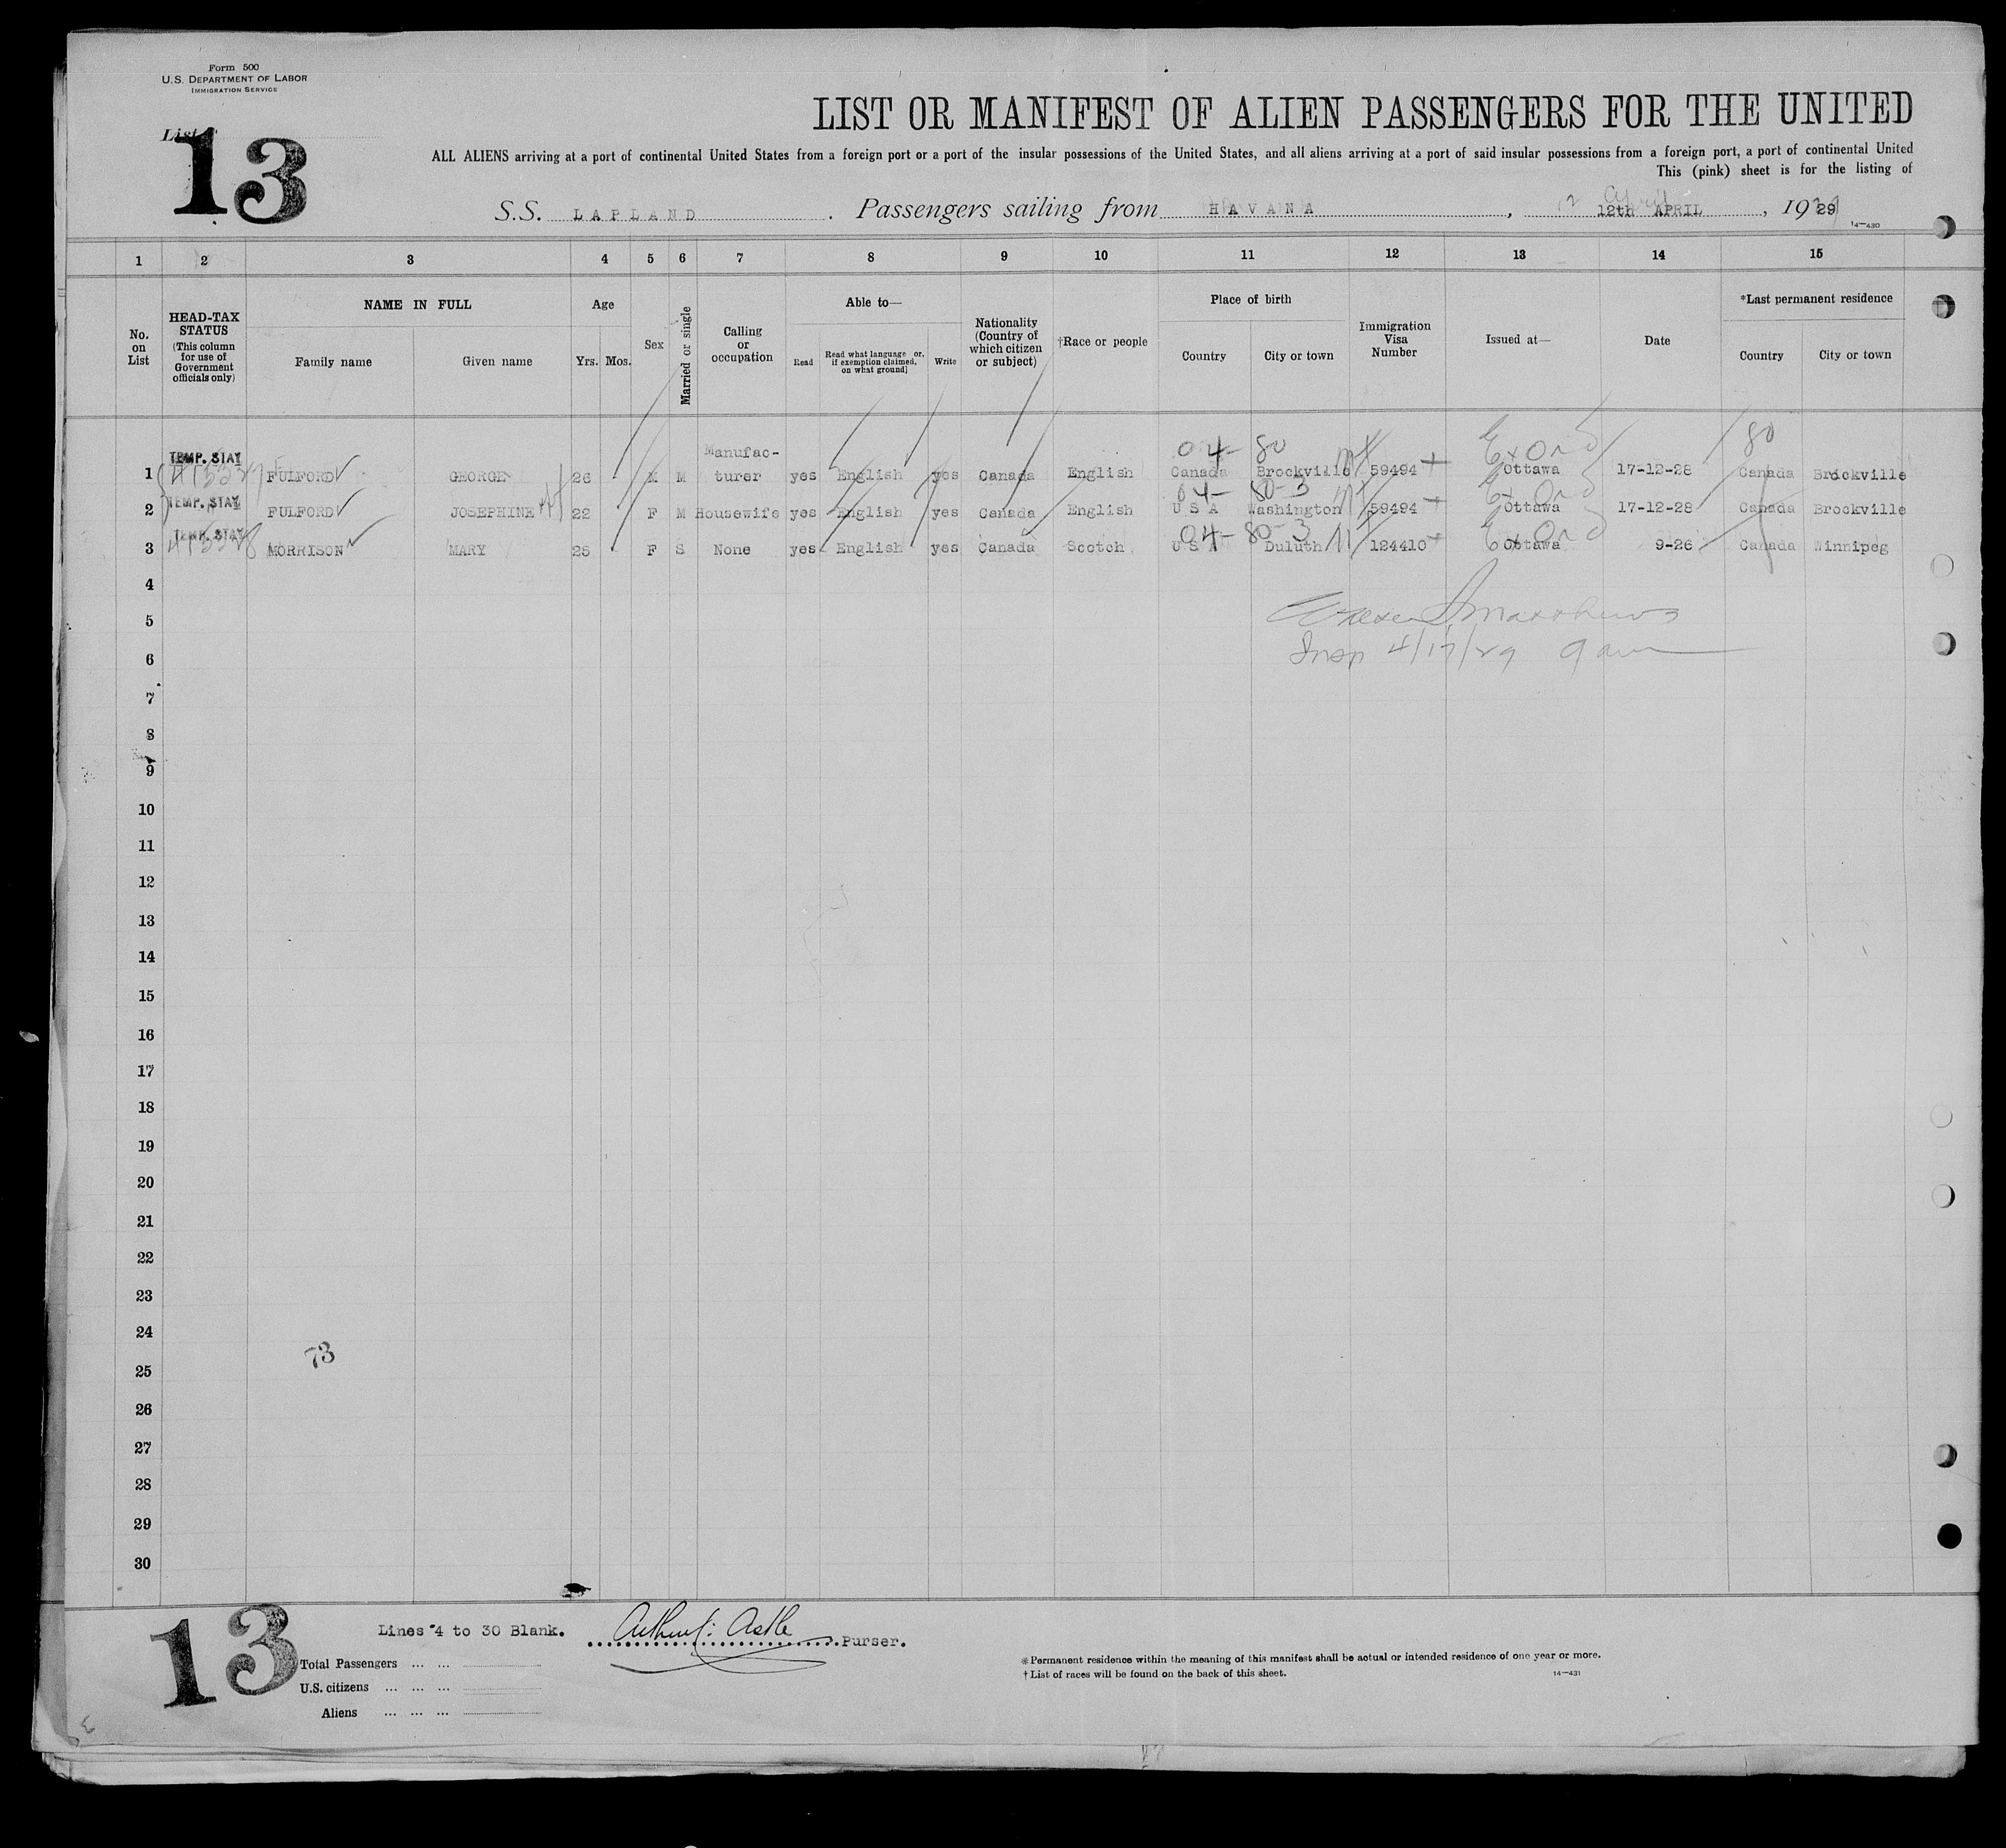 Form 500
U.S. DEPARTMENT OF LABOR
IMMIGRATION SERVICE
List
13
LIST OR MANIFEST OF ALIEN PASSENGERS FOR THE UNITED
ALL ALIENS arriving at a port of continental United States from a foreign port or a port of the insular possessions of the United States, and all aliens arriving at a port of said insular possessions from a foreign port, a port of continental United
This (pink) sheet is for the listing of
S.S. LAPLAND . Passengers sailing from HAVANA , 12th APRIL , 1929
14—430
1 2 3 4 5 6 7 8 9 10 11 12 13 14 15
No. on List
HEAD-TAX STATUS (This column for use of Government officials only)
NAME IN FULL
Family name
Given name
Age
Yrs. Mos.
Sex
Married or single
Calling or occupation
Able to—
Read
Read what language or, if exemption claimed, on what ground]
Write
Nationality (Country of which citizen or subject)
†Race or people
Place of birth
Country
City or town
Immigration Visa Number
Issued at—
Date
*Last permanent residence
Country
City or town
04- 80 Ex Ord 80
1 TEMP. STAY FULFORD GEORGE 26 M M Manufac-turer yes English yes Canada English Canada Brockville 59494 Ottawa 17-12-28 Canada Brockville
04- 80-3 Ex Ord
2 TEMP. STAY FULFORD JOSEPHINE 22 F M Housewife yes English yes Canada English U S A Washington 59494 Ottawa 17-12-28 Canada Brockville
04- 80-3 Ex Ord
3 TEMP. STAY MORRISON MARY 25 F S None yes English yes Canada Scotch U S A Duluth 124410 Ottawa 9-26 Canada Winnipeg
4
5
6 Insp 4/17/29 9 am
7
8
9
10
11
12
13
14
15
16
17
18
19
20
21
22
23
24
73
25
26
27
28
29
30
13
Lines 4 to 30 Blank. Arthur C. Astle Purser.
Total Passengers ... ...
U.S. citizens ... ... ...
Aliens ... ... ...
*Permanent residence within the meaning of this manifest shall be actual or intended residence of one year or more.
†List of races will be found on the back of this sheet.
14—431